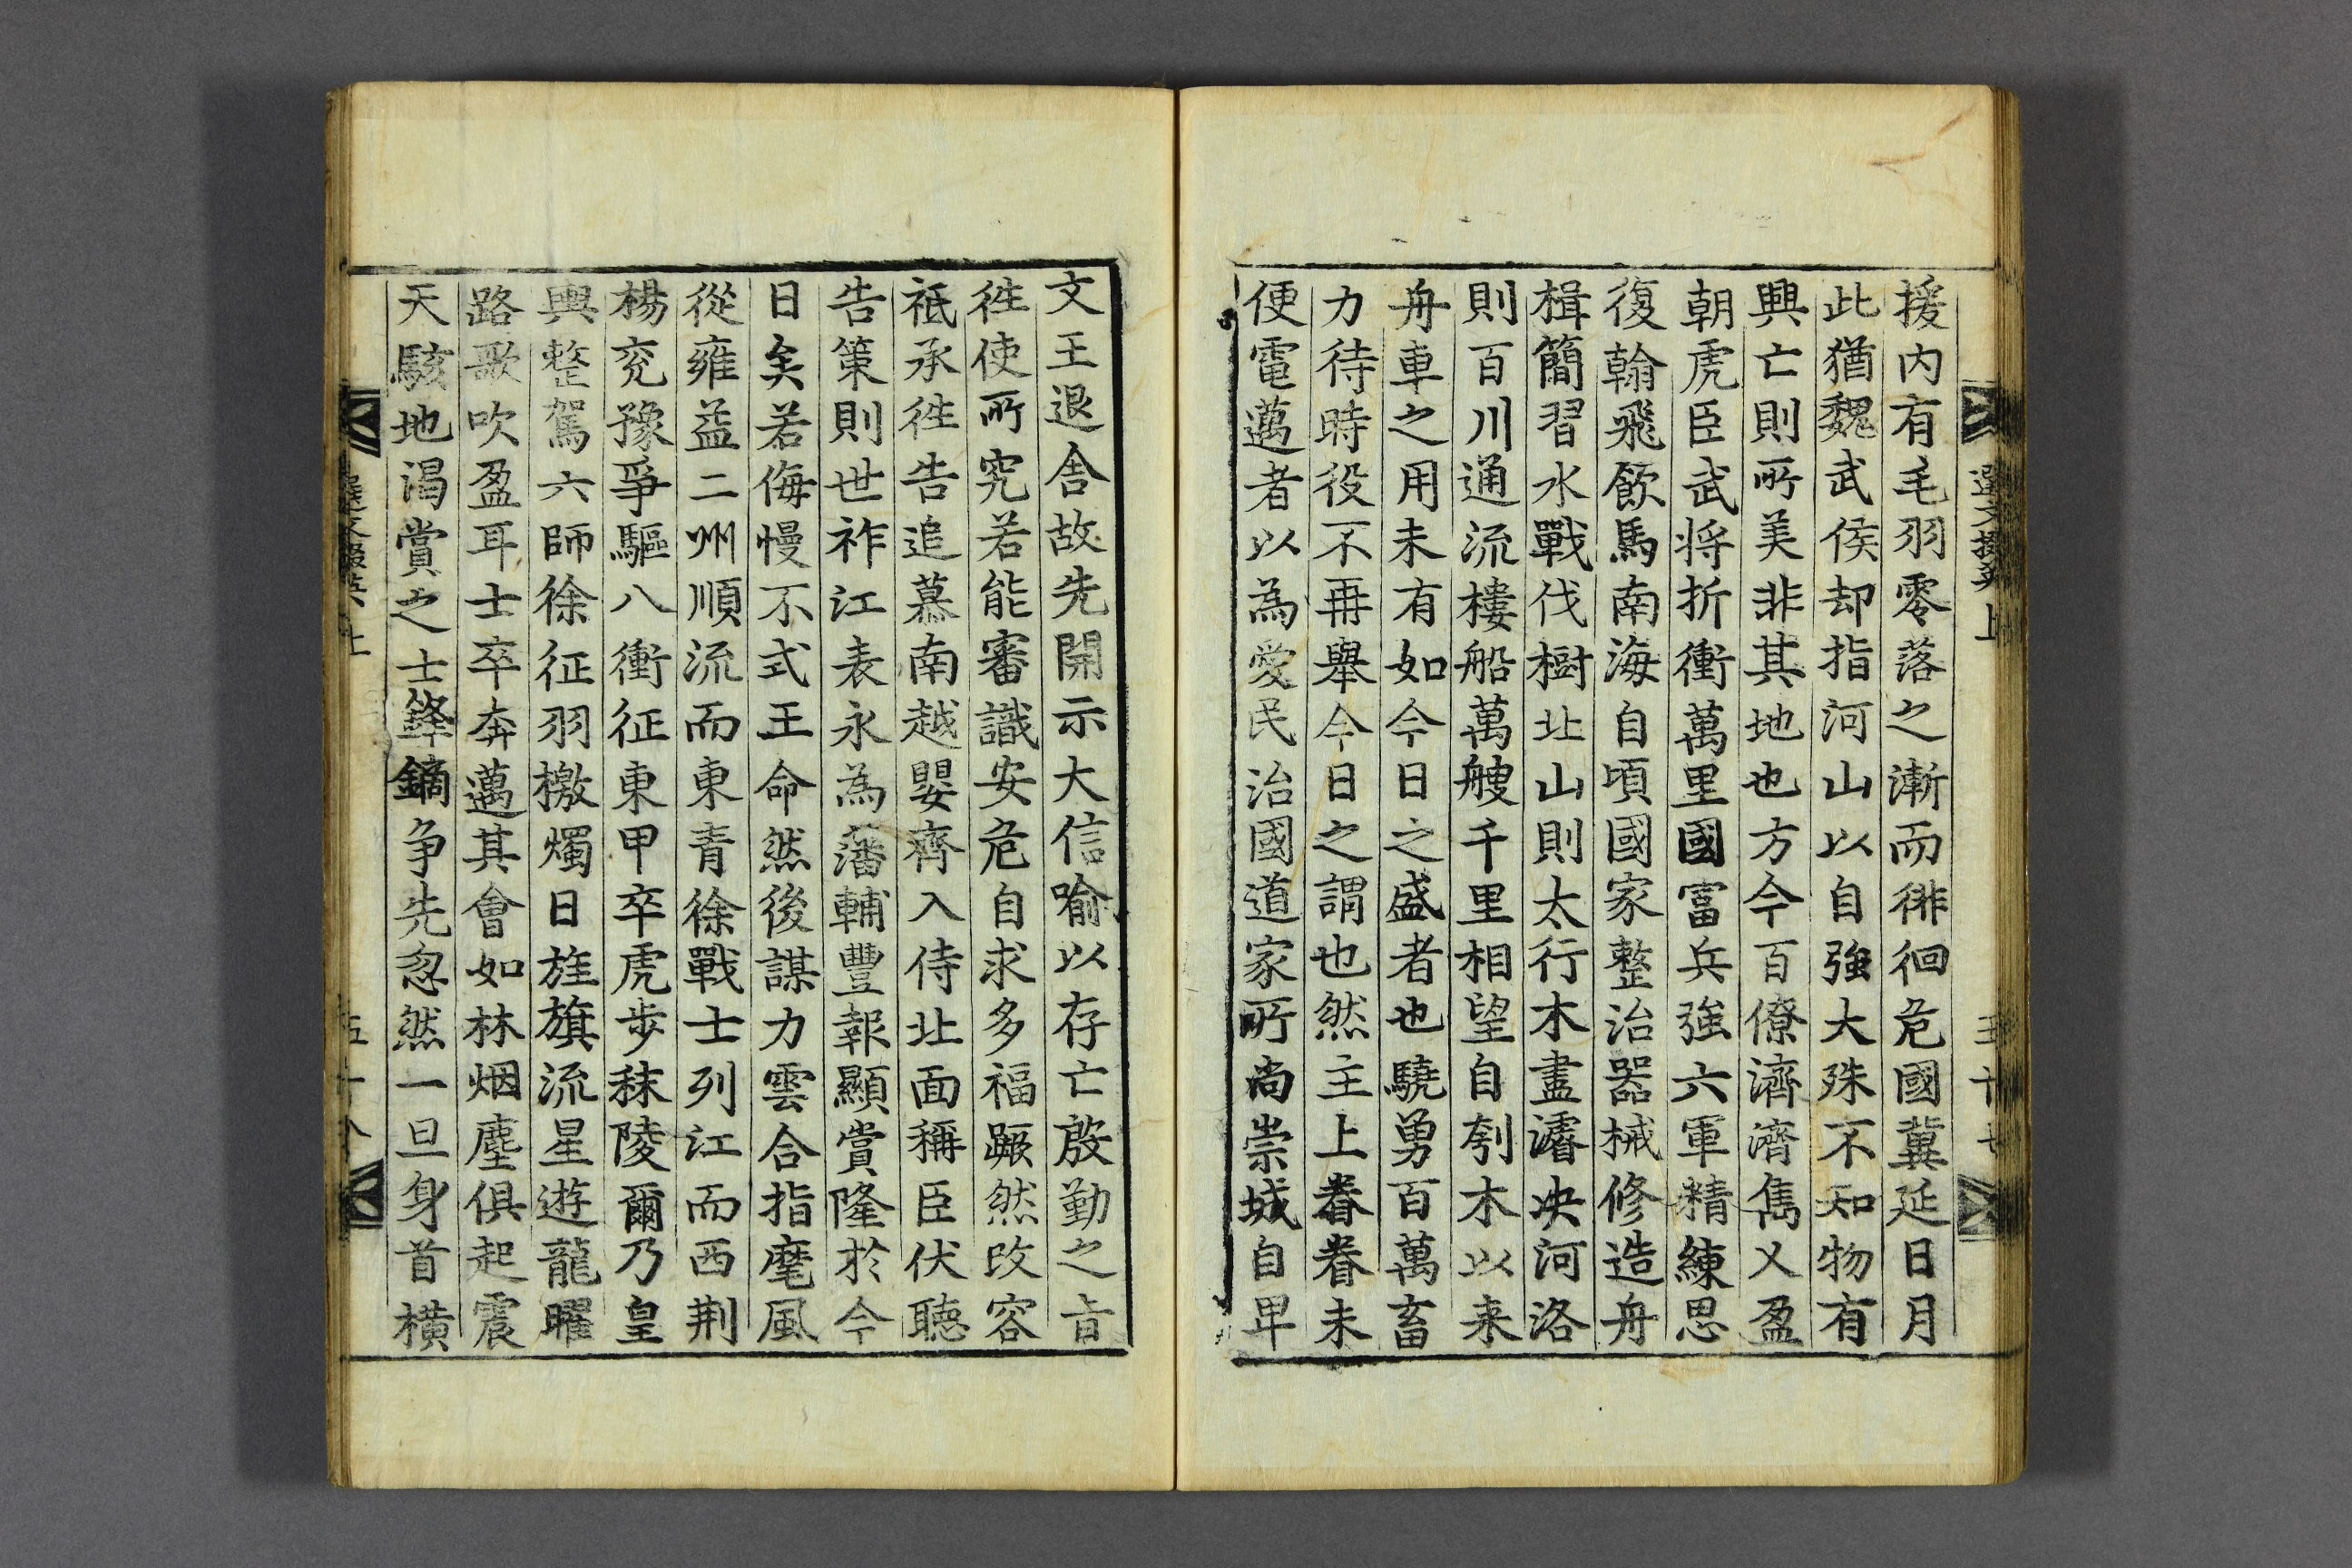 選文掇英上
五十七
援內有毛羽零落之漸而徘徊危國冀延日月
此猶魏武侯却指河山以自強大殊不知物有
興亡則所美非其地也方今百僚濟濟雋乂盈
朝虎臣武將折衝萬里國富兵強六軍精練思
復翰飛飮馬南海自頃國家整治器械修造舟
楫簡習水戰伐樹北山則太行木盡濬决河洛
則百川通流樓船萬艘千里相望自刳木以来
舟車之用未有如今日之盛者也驍勇百萬畜
力待時役不再舉今日之謂也然主上眷眷未
便電邁者以為愛民治國道家所尚崇城自卑
文王退舍故先開示大信喻以存亡殷勤之㫖
徃使所究若能審識安危自求多福蹶然改容
祇承徃告追慕南越嬰齊入侍北面稱臣伏聽
告策則世祚江表永為藩輔豐報顯賞隆於今
日矣若侮慢不式王命然後謀力雲合指麾風
從雍益二州順流而東青徐戰士列江而西荆
楊兖豫爭驅八衝征東甲卒虎步秣陵爾乃皇
輿整駕六師徐征羽檄燭日旌旗流星遊龍曜
路歌吹盈耳士卒奔邁其會如林烟塵俱起震
天駭地渴賞之士鋒鏑争先忽然一旦身首橫
選文掇英上
五十八